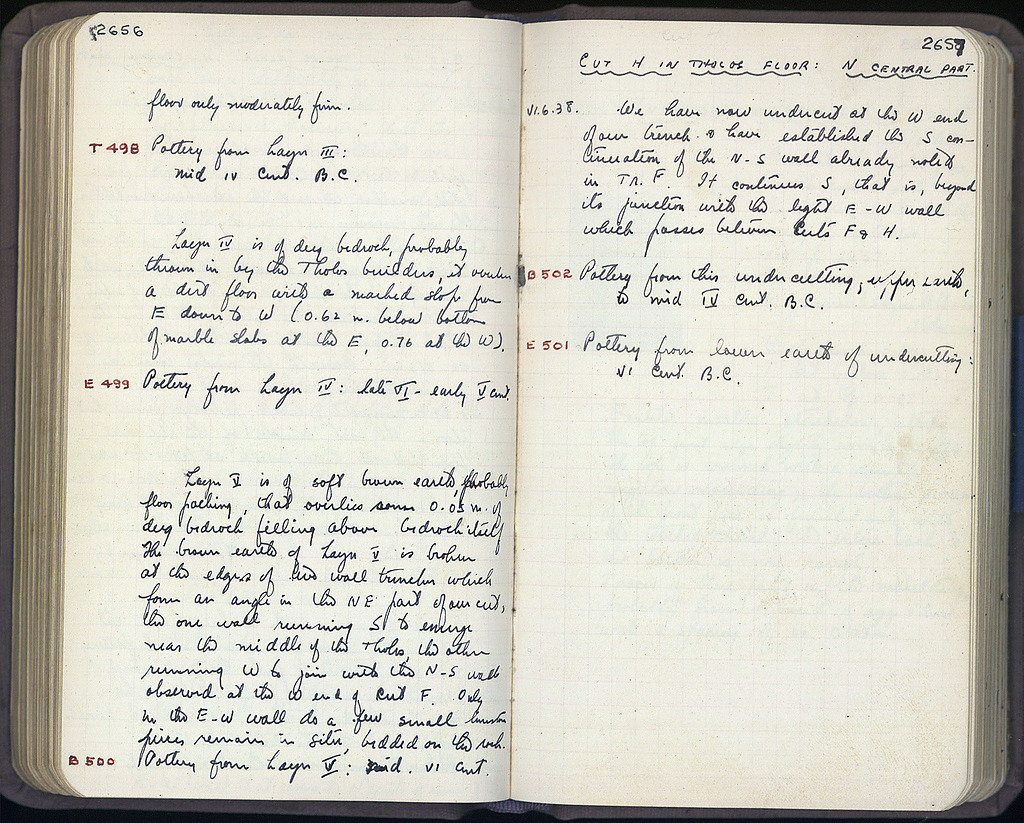 2656
floor only moderately firm.
T 498 Pottery from Layer III:
mid IV Cent. B.C.
Layer IV is of deg bedrock, probably
thrown in by the Tholos builders, it overlies
a dirt floor with a marked slope from
E down to W (0.62 m. below bottom
of marble slabs at the E, 0.76 at the W).
E 499 Pottery from Layer IV: late VI - early V Cent.
Layer V is of soft brown earth, probably
floor packing, that overlies some 0.05 m. of
deg bedrock filling above bedrock itself
The brown earth of Layer V is broken
at the edges of two wall trenches which
form an angle in the NE part of our cut,
the one wall running S to emerge
near the middle of the Tholos, the other
running W to join with the N-S wall
observed at the W end of Cut F. Only
in the E-W wall do a few small limestone
pieces remain in situ, bedded on the rock.
B 500 Pottery from Layer V: mid. VI Cent.
2657
CUT H IN THOLOS FLOOR: N CENTRAL PART.
VI.6.38. We have now undercut at the W end
of our trench & have established the S con-
tinuation of the N-S wall already noted
in TR. F. It continues S, that is, beyond
its junction with the light E-W wall
which passes between Cuts F & H.
B 502 Pottery from this undercutting, upper earth,
to mid IV Cent. B.C.
E 501 Pottery from lower earth of undercutting:
VI Cent. B.C.